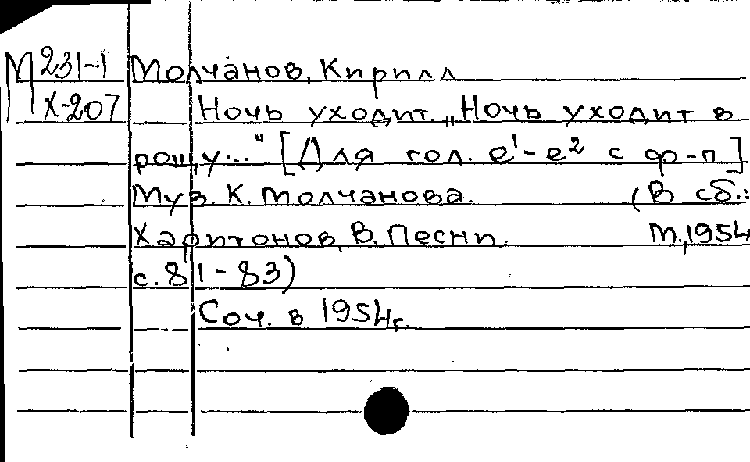 М 231-1 Молчанов, Кирилл
Х-207 Ночь уходит. „Ночь уходит в
рощу..." [Для гол. e¹-e² с ф-п]
Муз. К. Молчанова. (В сб.:
Харитонов, В. Песни. М., 1954
с. 81-83)
Соч. в 1954г.